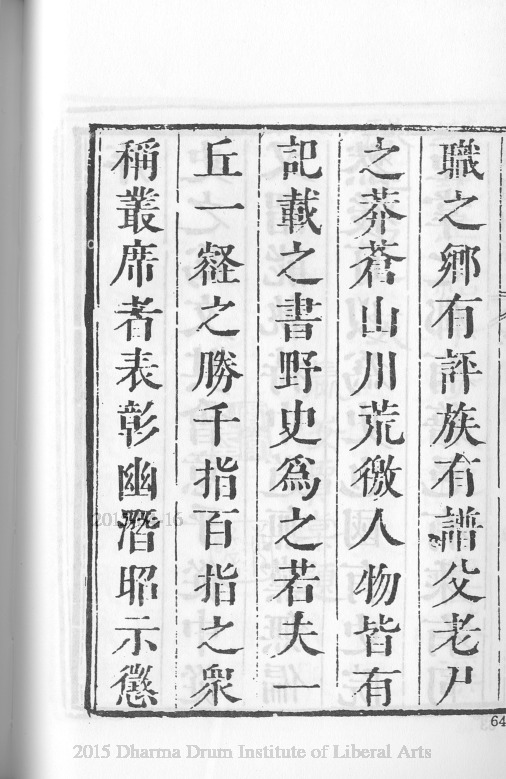 職之鄉有評族有譜父老尸
之莽蒼山川荒徼人物皆有
記載之書野史爲之若夫一
丘一壑之勝千指百指之衆
稱叢席者表彰幽潛昭示懲
64
2015 Dharma Drum Institute of Liberal Arts